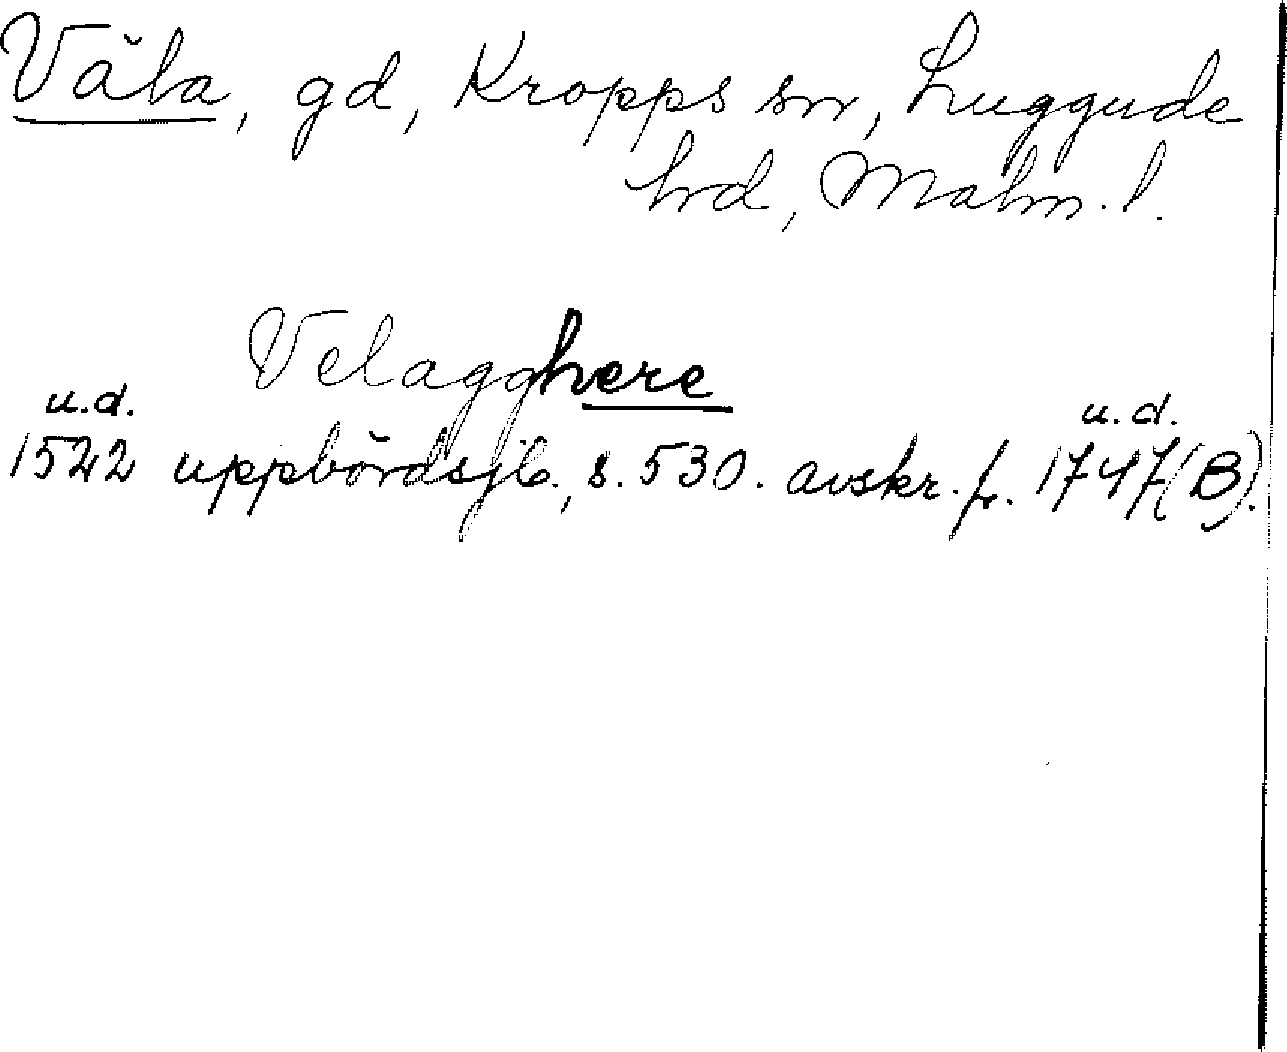 Våla, gd, Kropps sn, Luggude
hrd, Malm. l.
Velagghere
u.d. u.d.
1522 uppbördsjb., s. 530. avskr. fr. 1747(B).